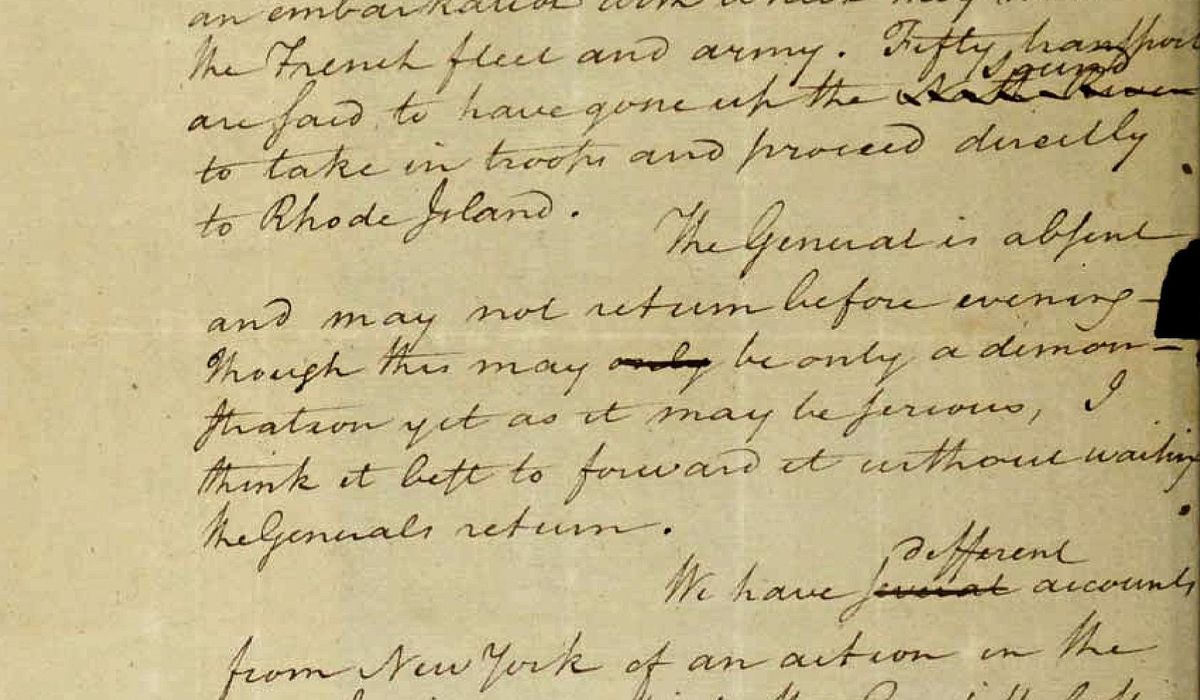 an embarkation with
the French fleet and army. Fifty transport
sound
are said to have gone up the North River
to take in troops and proceed directly
to Rhode Island.
The General is absent
and may not return before evening—
though this may only be only a demon-
stration yet as it may be serious, I
think it best to forward it without waiting
the Generals return.
different
We have several accounts
from New York of an action in the